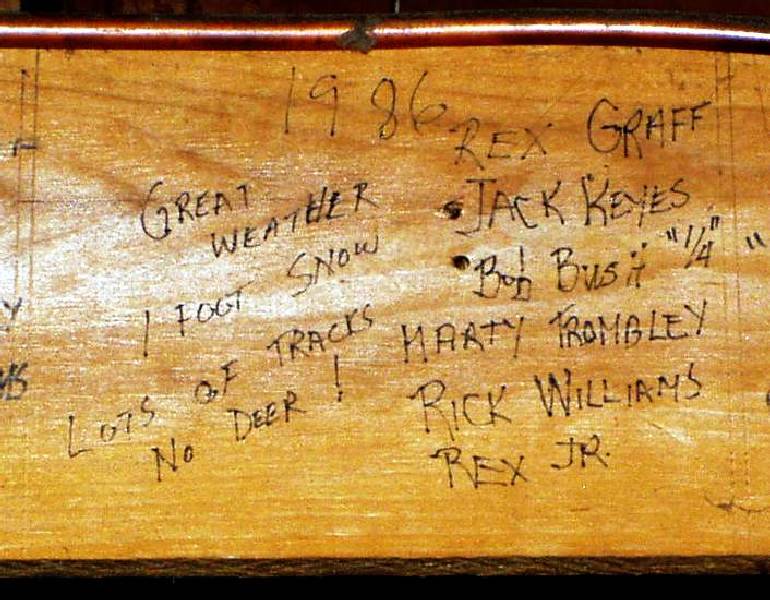 1986
GREAT
WEATHER
1 FOOT SNOW
LOTS OF TRACKS
NO DEER!
REX GRAFF
JACK KEYES
BOB BUSH "1/4"
MARTY TROMBLEY
RICK WILLIAMS
REX JR.